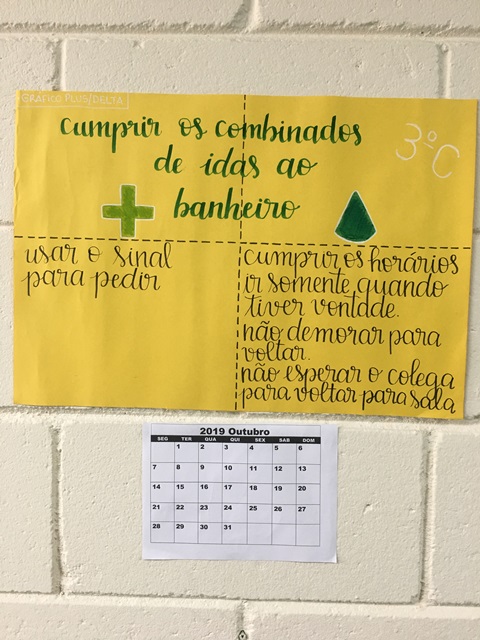 GRÁFICO PLUS/DELTA
cumprir os combinados
de idas ao
banheiro
3ºC
usar o sinal
para pedir
cumprir os horários
ir somente quando
tiver vontade.
não demorar para
voltar.
não esperar o colega
para voltar para sala
2019 Outubro
SEG TER QUA QUI SEX SAB DOM
1 2 3 4 5 6
7 8 9 10 11 12 13
14 15 16 17 18 19 20
21 22 23 24 25 26 27
28 29 30 31